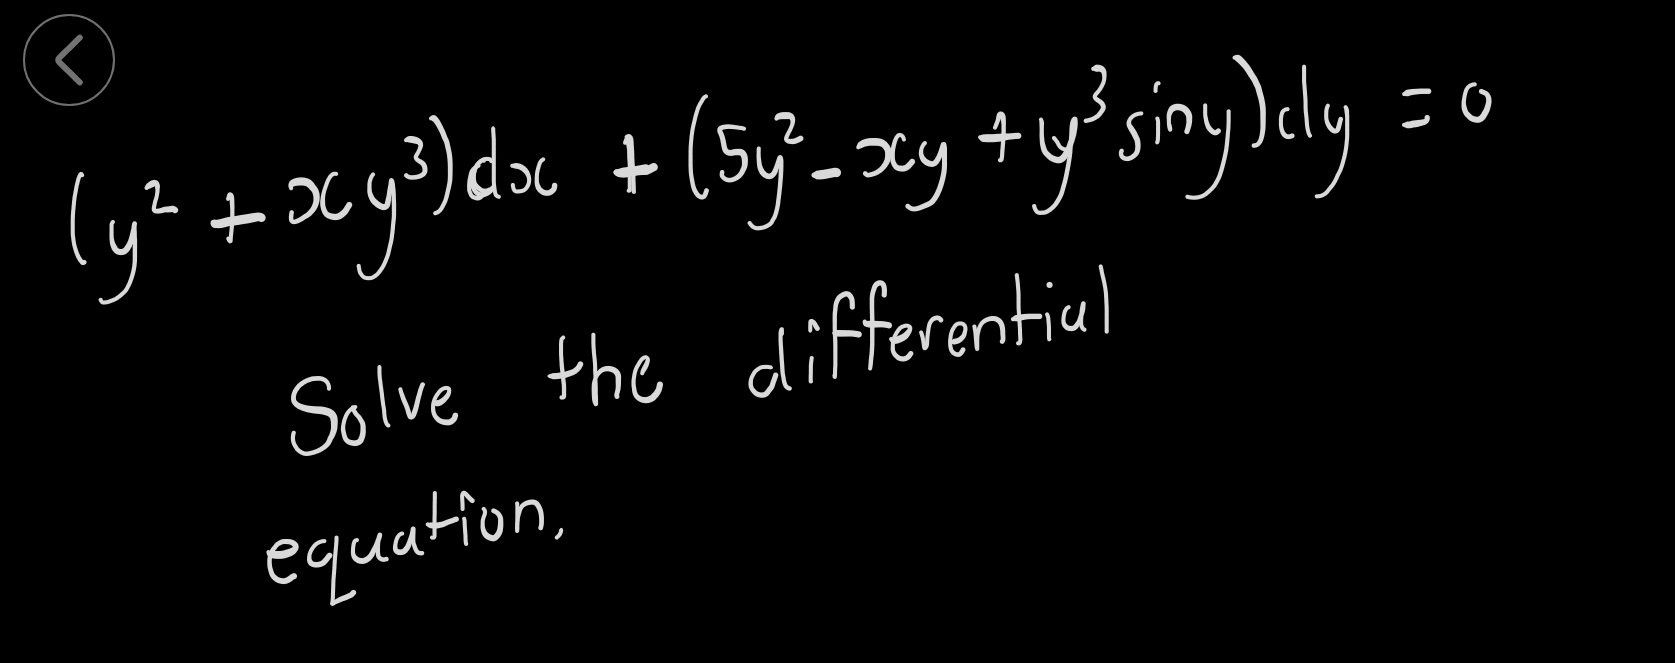 (y² + xy³)dx + (5y² - xy + y³ siny)dy = 0
Solve the differential
equation.